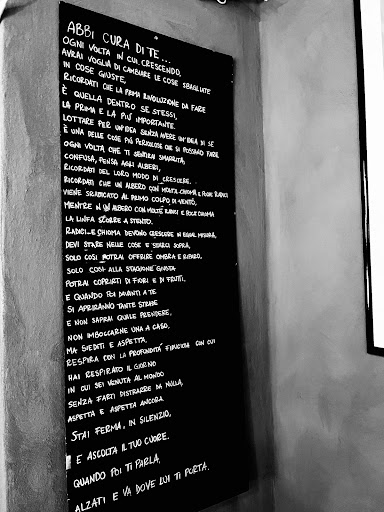 ABBI CURA DI TE...
OGNI VOLTA IN CUI, CRESCENDO,
AVRAI VOGLIA DI CAMBIARE LE COSE SBAGLIATE
IN COSE GIUSTE,
RICORDATI CHE LA PRIMA RIVOLUZIONE DA FARE
È QUELLA DENTRO SE STESSI,
LA PRIMA E LA PIÙ IMPORTANTE.
LOTTARE PER UN'IDEA SENZA AVERE UN'IDEA DI SE
È UNA DELLE COSE PIÙ PERICOLOSE CHE SI POSSANO FARE.
OGNI VOLTA CHE TI SENTIRAI SMARRITA,
CONFUSA, PENSA AGLI ALBERI,
RICORDATI DEL LORO MODO DI CRESCERE.
RICORDATI CHE UN ALBERO CON MOLTA CHIOMA E POCHE RADICI
VIENE SRADICATO AL PRIMO COLPO DI VENTO,
MENTRE IN UN ALBERO CON MOLTE RADICI E POCA CHIOMA
LA LINFA SCORRE A STENTO.
RADICI E CHIOMA DEVONO CRESCERE IN EGUAL MISURA,
DEVI STARE NELLE COSE E STARCI SOPRA,
SOLO COSÌ POTRAI OFFRIRE OMBRA E RIPARO,
SOLO COSÌ ALLA STAGIONE GIUSTA
POTRAI COPRIRTI DI FIORI E DI FRUTTI.
E QUANDO POI DAVANTI A TE
SI APRIRANNO TANTE STRADE
E NON SAPRAI QUALE PRENDERE,
NON IMBOCCARNE UNA A CASO,
MA SIEDITI E ASPETTA.
RESPIRA CON LA PROFONDITÀ FIDUCIOSA CON CUI
HAI RESPIRATO IL GIORNO
IN CUI SEI VENUTA AL MONDO
SENZA FARTI DISTRARRE DA NULLA,
ASPETTA E ASPETTA ANCORA.
STAI FERMA, IN SILENZIO,
E ASCOLTA IL TUO CUORE.
QUANDO POI TI PARLA,
ALZATI E VA DOVE LUI TI PORTA.